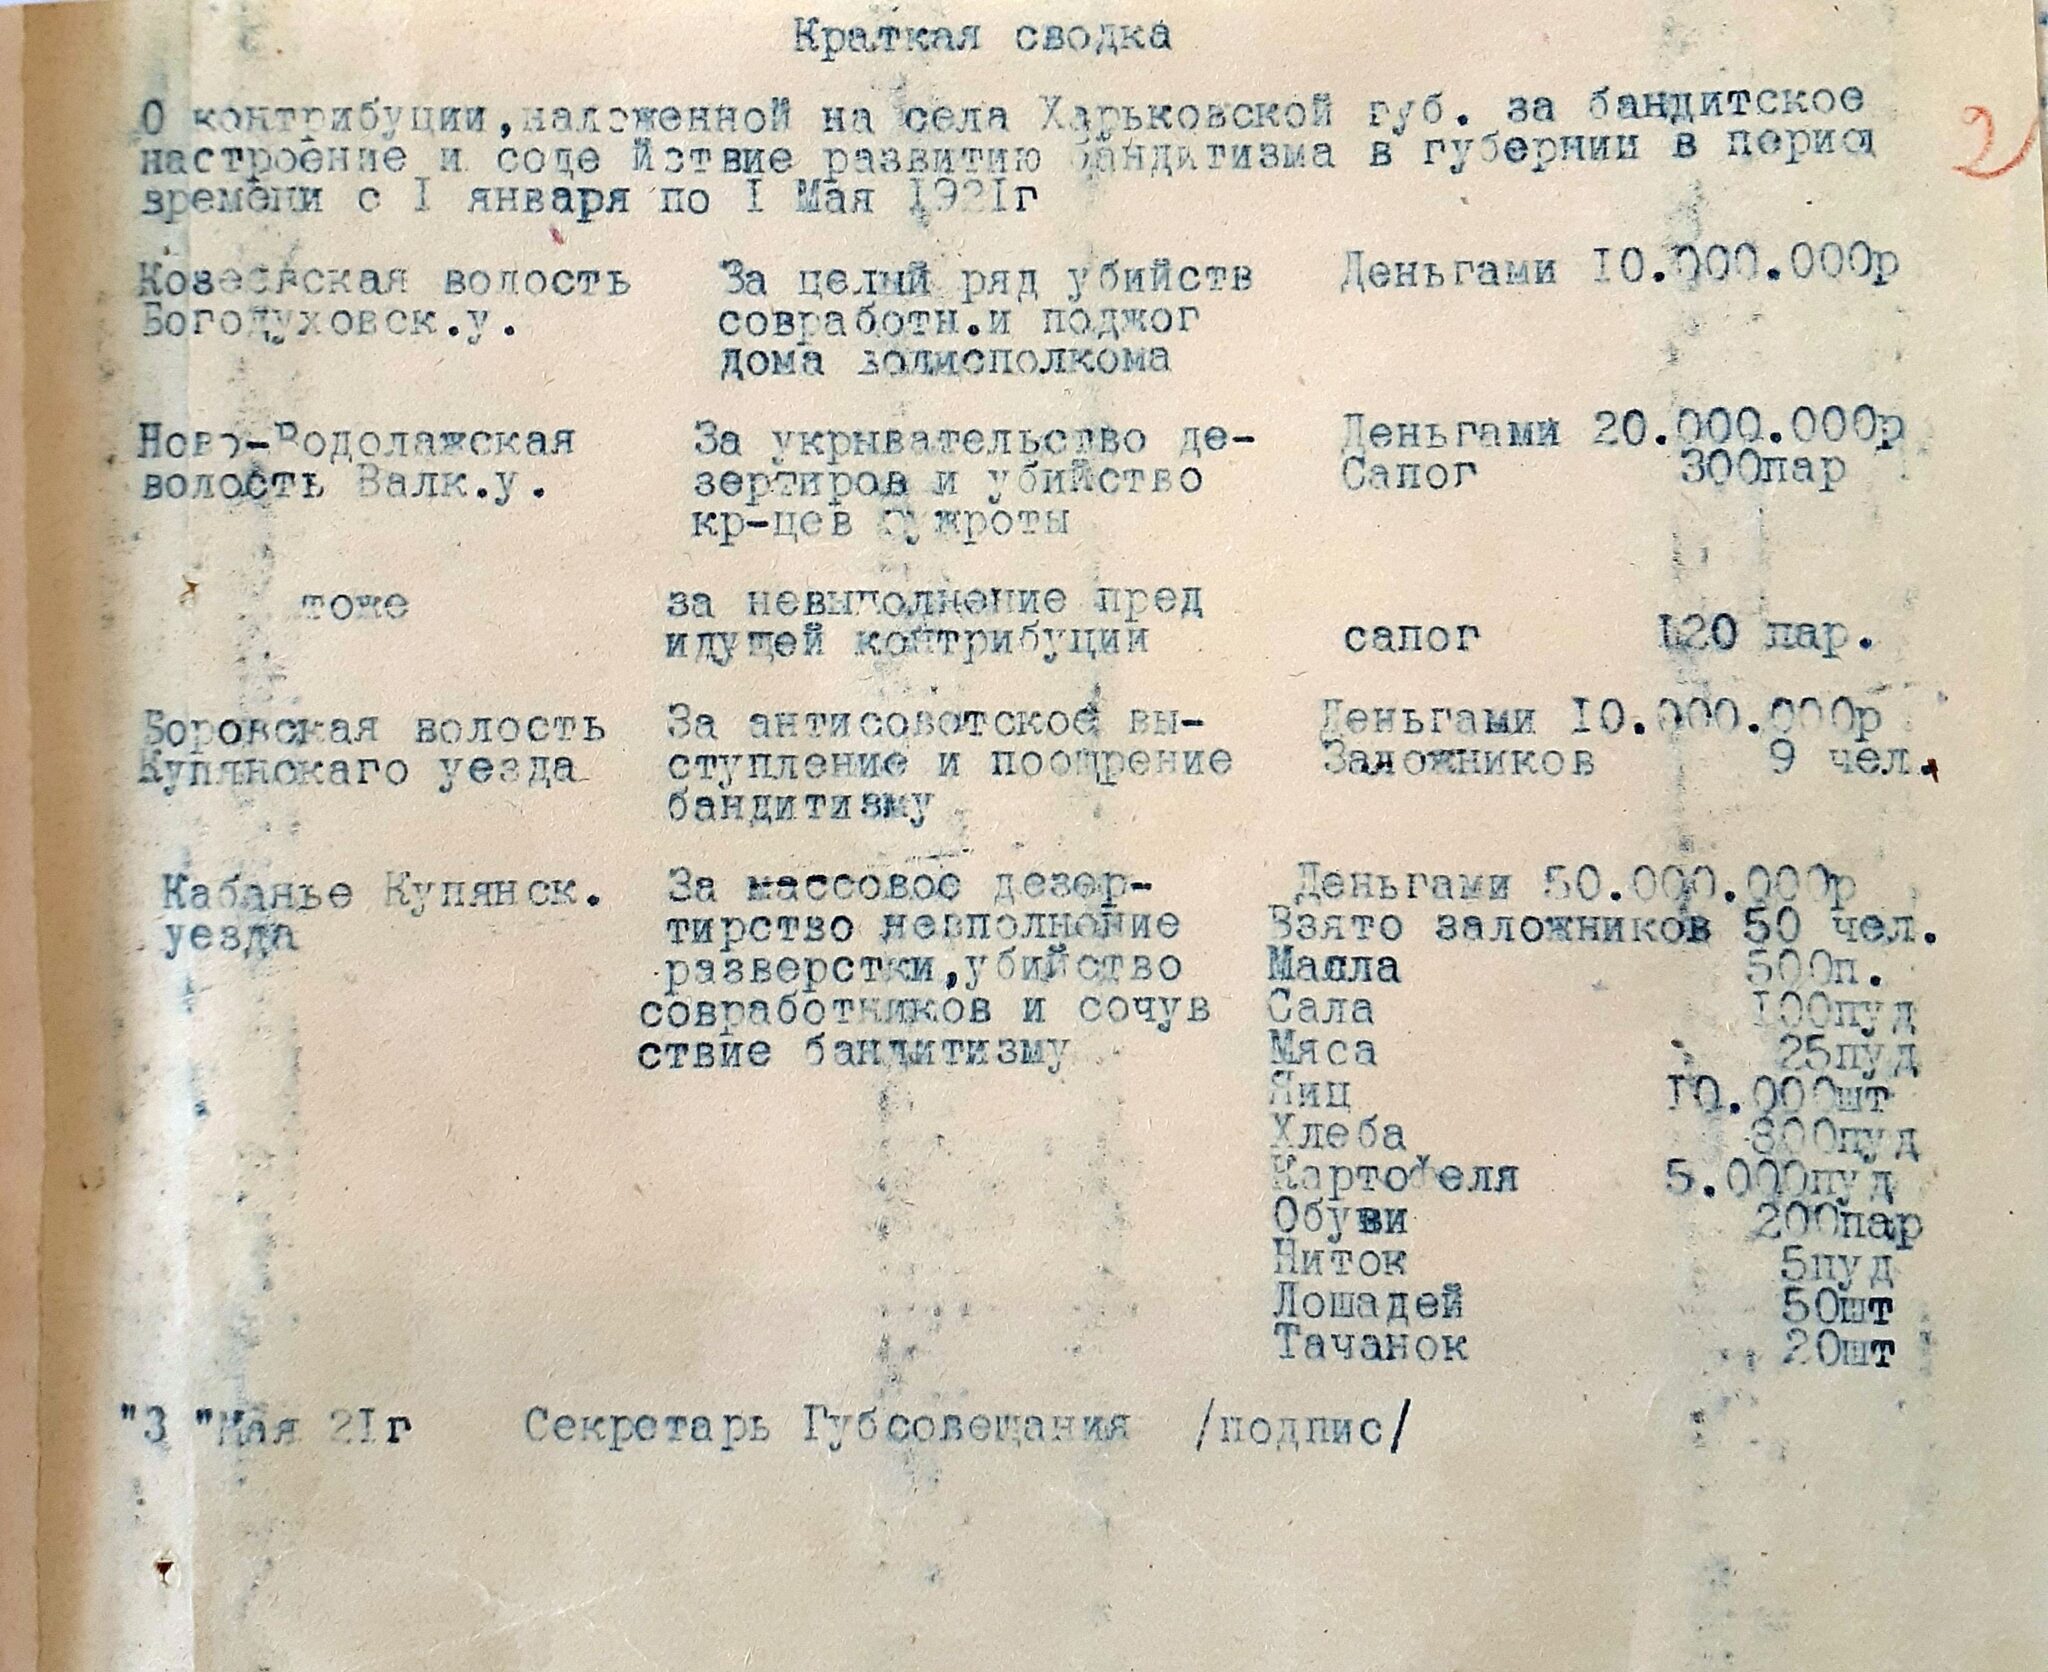 Краткая сводка
2
О контрибуции,наложенной на села Харьковской губ. за бандитское
настроение и соде йствие развитию бандитизма в губернии в период
времени с I января по I Мая 1921г
Козеевская волость За целый ряд убийств Деньгами I0.000.000р
Богодуховск.у. совработн.и поджог
дома волисполкома
Ново-Водолажская За укрывательство де- Деньгами 20.000.000р
волость Валк.у. зертиров и убийство Сапог 300пар
кр-цев гужроты
тоже за невыполнение пред
идущей контрибуции сапог 120 пар.
Боровская волость За антисоветское вы- Деньгами I0.000.000р
Купянскаго уезда ступление и поощрение Заложников 9 чел.
бандитизму
Кабанье Купянск. За массовое дезер- Деньгами 50.000.000р
уезда тирство невполнение Взято заложников 50 чел.
разверстки,убийство Масла 500п.
совработников и сочув Сала I00пуд
ствие бандитизму Мяса 25пуд
Яиц I0.000шт
Хлеба 800пуд
Картофеля 5.000пуд
Обуви 200пар
Ниток 5пуд
Лошадей 50шт
Тачанок 20шт
"3 "Мая 2Iг Секретарь Губсовещания /подпис/